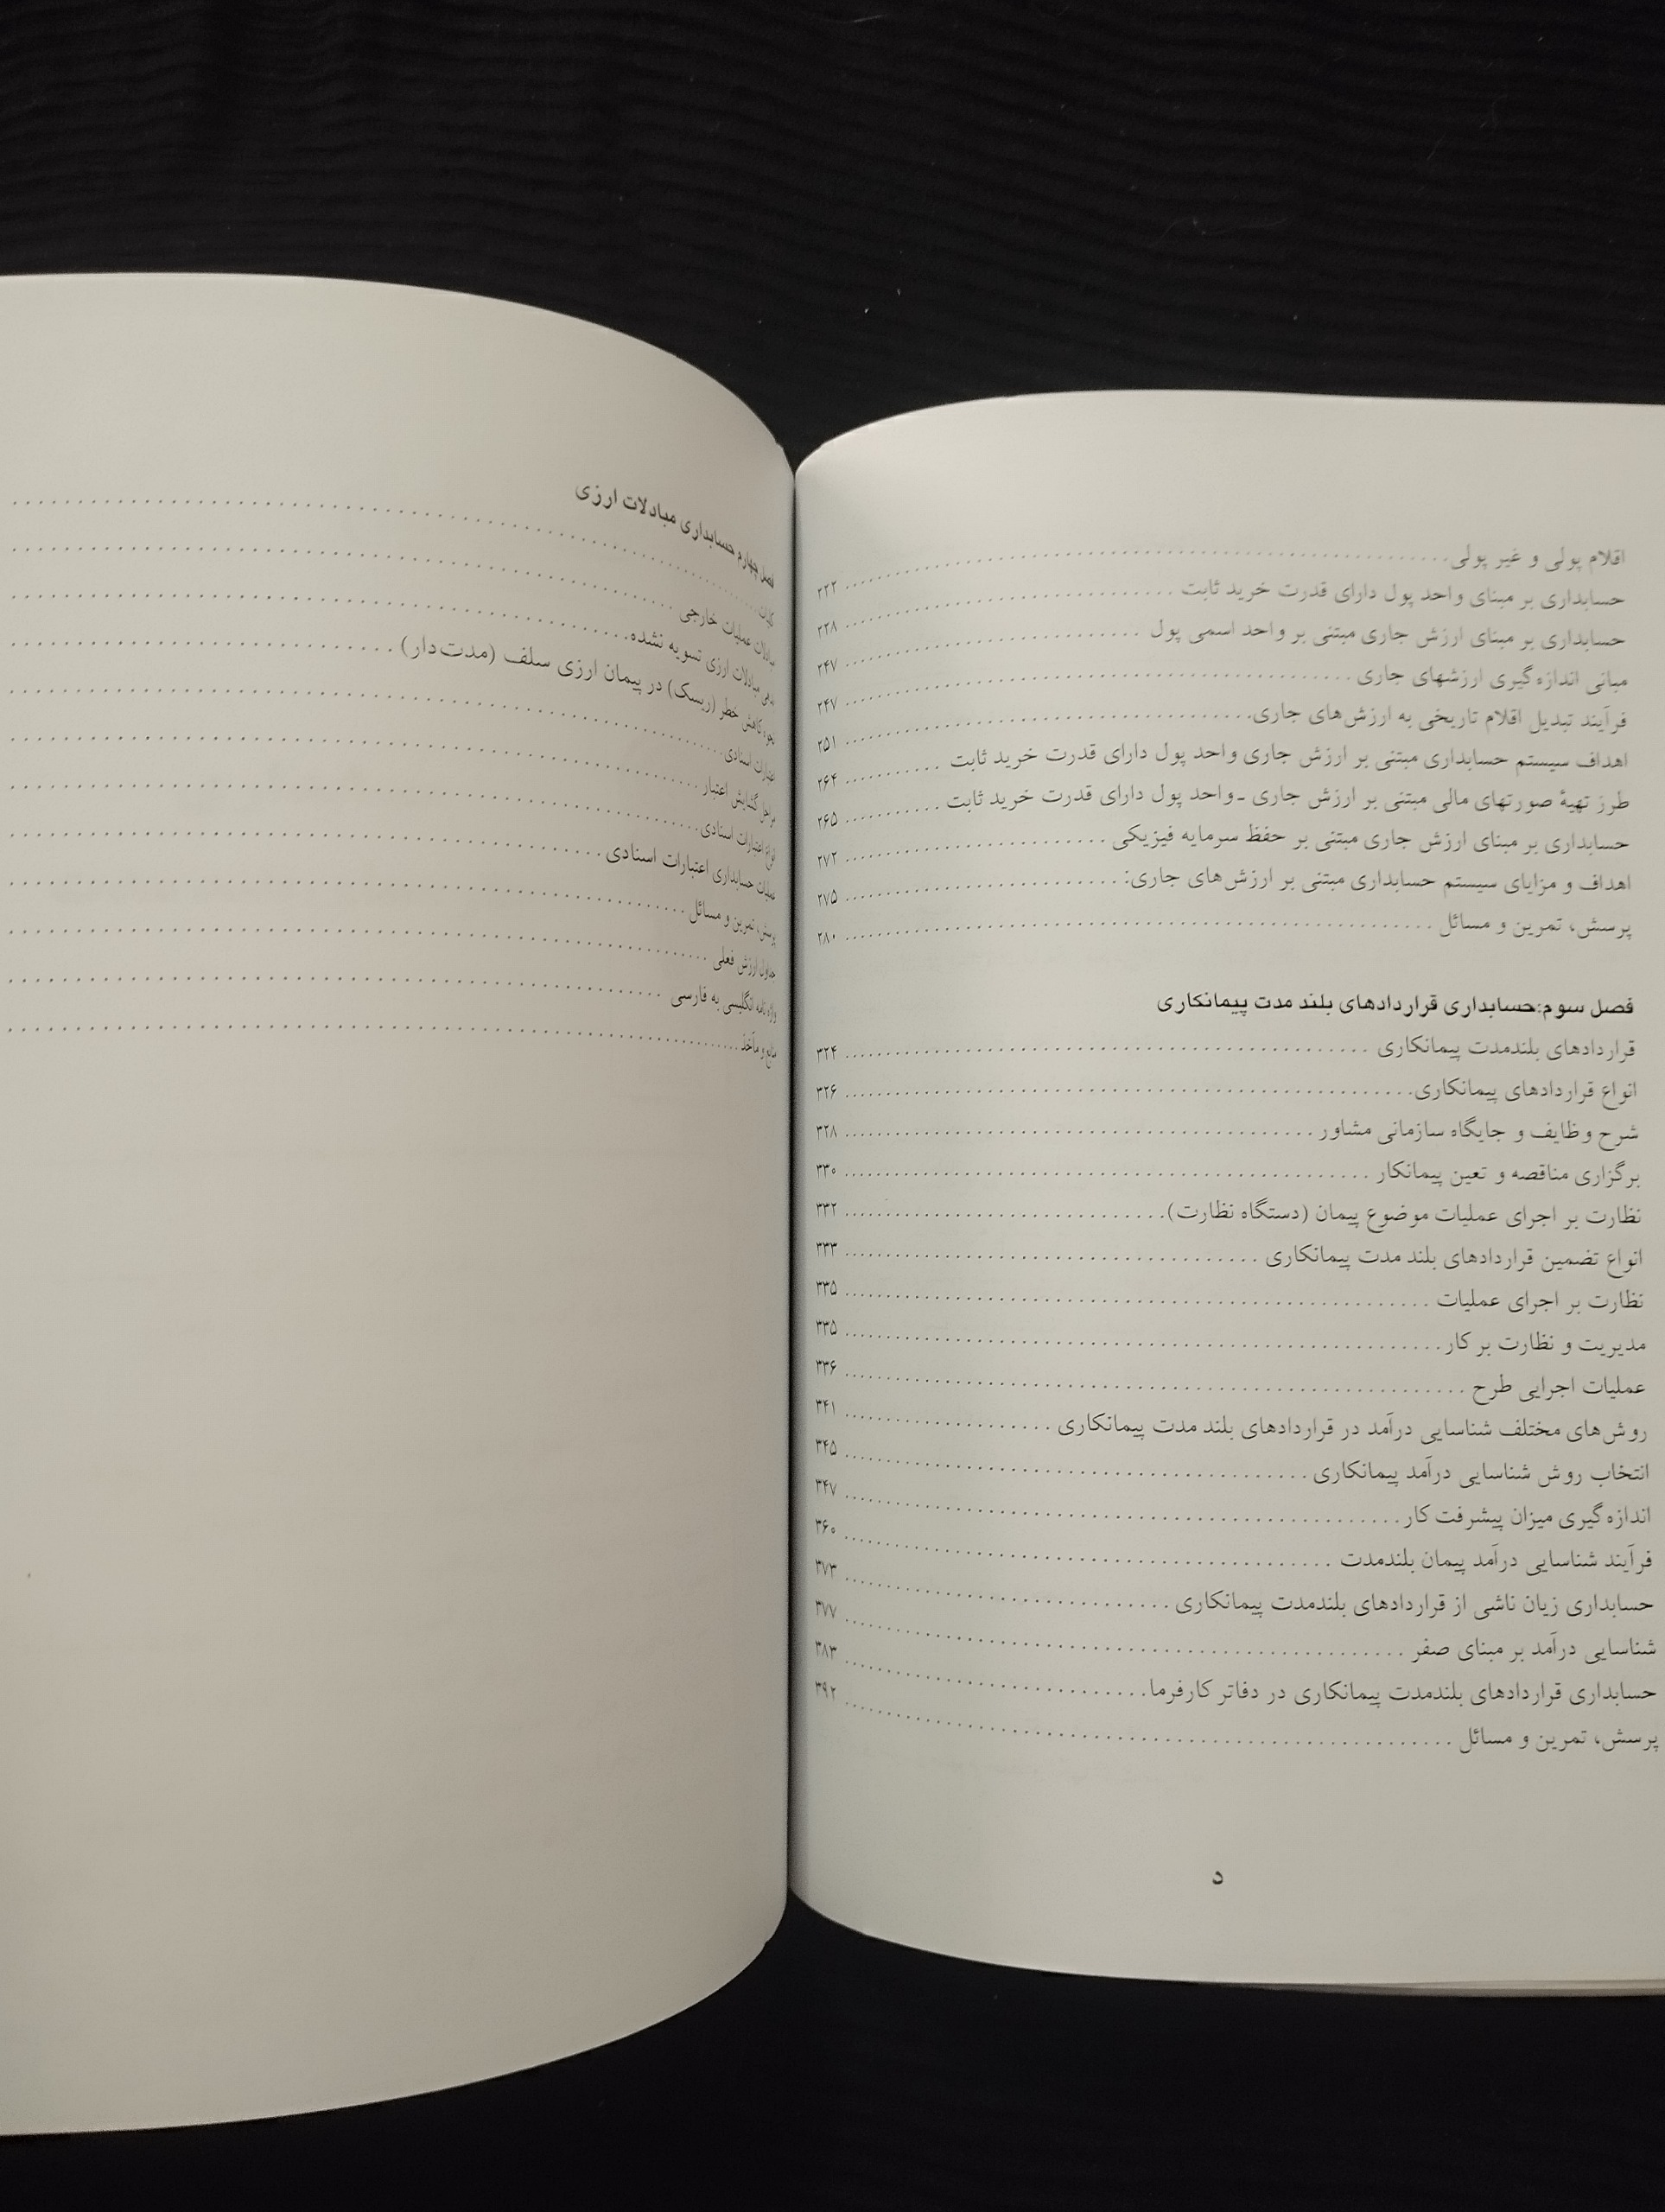 اقلام پولی و غیر پولی ........ ۲۲۲
حسابداری بر مبنای واحد پول دارای قدرت خرید ثابت ........ ۲۲۸
حسابداری بر مبنای ارزش جاری مبتنی بر واحد اسمی پول ........ ۲۴۷
مبانی اندازه‌گیری ارزشهای جاری ........ ۲۴۷
فرآیند تبدیل اقلام تاریخی به ارزش‌های جاری ........ ۲۵۱
اهداف سیستم حسابداری مبتنی بر ارزش جاری واحد پول دارای قدرت خرید ثابت ........ ۲۶۴
طرز تهیهٔ صورتهای مالی مبتنی بر ارزش جاری ـ واحد پول دارای قدرت خرید ثابت ........ ۲۶۵
حسابداری بر مبنای ارزش جاری مبتنی بر حفظ سرمایه فیزیکی ........ ۲۷۲
اهداف و مزایای سیستم حسابداری مبتنی بر ارزش‌های جاری: ........ ۲۷۵
پرسش، تمرین و مسائل ........ ۲۸۰
فصل سوم:حسابداری قراردادهای بلند مدت پیمانکاری
قراردادهای بلندمدت پیمانکاری ........ ۳۲۴
انواع قراردادهای پیمانکاری ........ ۳۲۶
شرح وظایف و جایگاه سازمانی مشاور ........ ۳۲۸
برگزاری مناقصه و تعین پیمانکار ........ ۳۳۰
نظارت بر اجرای عملیات موضوع پیمان (دستگاه نظارت) ........ ۳۳۲
انواع تضمین قراردادهای بلند مدت پیمانکاری ........ ۳۳۳
نظارت بر اجرای عملیات ........ ۳۳۵
مدیریت و نظارت بر کار ........ ۳۳۵
عملیات اجرایی طرح ........ ۳۳۶
روش‌های مختلف شناسایی درآمد در قراردادهای بلند مدت پیمانکاری ........ ۳۴۱
انتخاب روش شناسایی درآمد پیمانکاری ........ ۳۴۵
اندازه‌گیری میزان پیشرفت کار ........ ۳۴۷
فرآیند شناسایی درآمد پیمان بلندمدت ........ ۳۶۰
حسابداری زیان ناشی از قراردادهای بلندمدت پیمانکاری ........ ۳۷۳
شناسایی درآمد بر مبنای صفر ........ ۳۷۷
حسابداری قراردادهای بلندمدت پیمانکاری در دفاتر کارفرما ........ ۳۸۳
پرسش، تمرین و مسائل ........ ۳۹۲
د
فصل چهارم حسابداری مبادلات ارزی
کلیات ........
مبادلات عملیات خارجی ........
مبادلات ارزی تسویه نشده ........
نحوه کاهش خطر (ریسک) در پیمان ارزی سلف (مدت‌دار) ........
اعتبارات اسنادی ........
مراحل گشایش اعتبار ........
انواع اعتبارات اسنادی ........
عملیات حسابداری اعتبارات اسنادی ........
پرسش، تمرین و مسائل ........
جداول ارزش فعلی ........
واژه نامه انگلیسی به فارسی ........
منابع و مآخذ ........